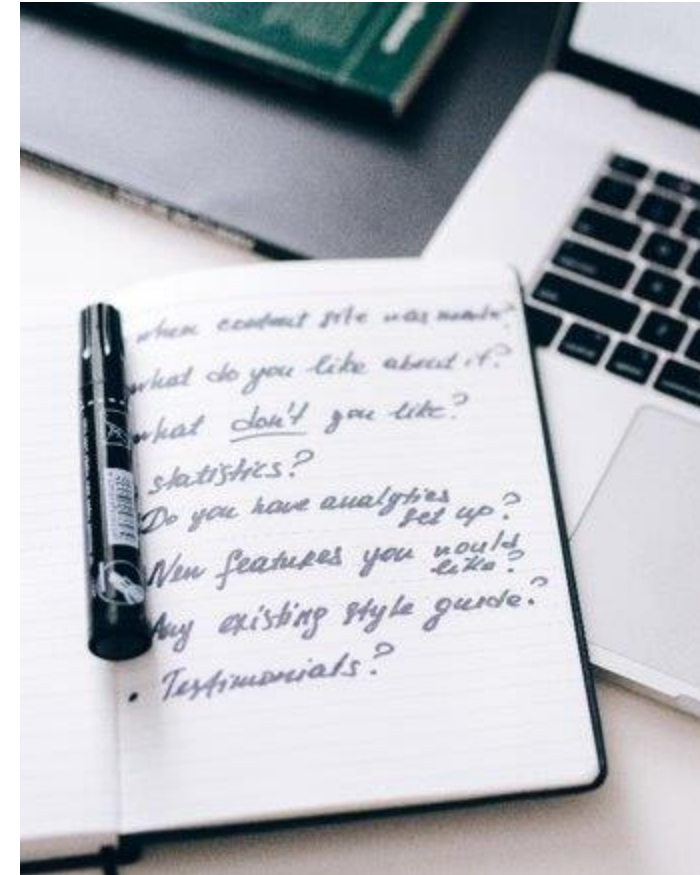 when current site was made?
what do you like about it?
what don't you like?
statistics?
Do you have analytics
set up?
New features you would
like?
Any existing style guide?
. Testimonials?